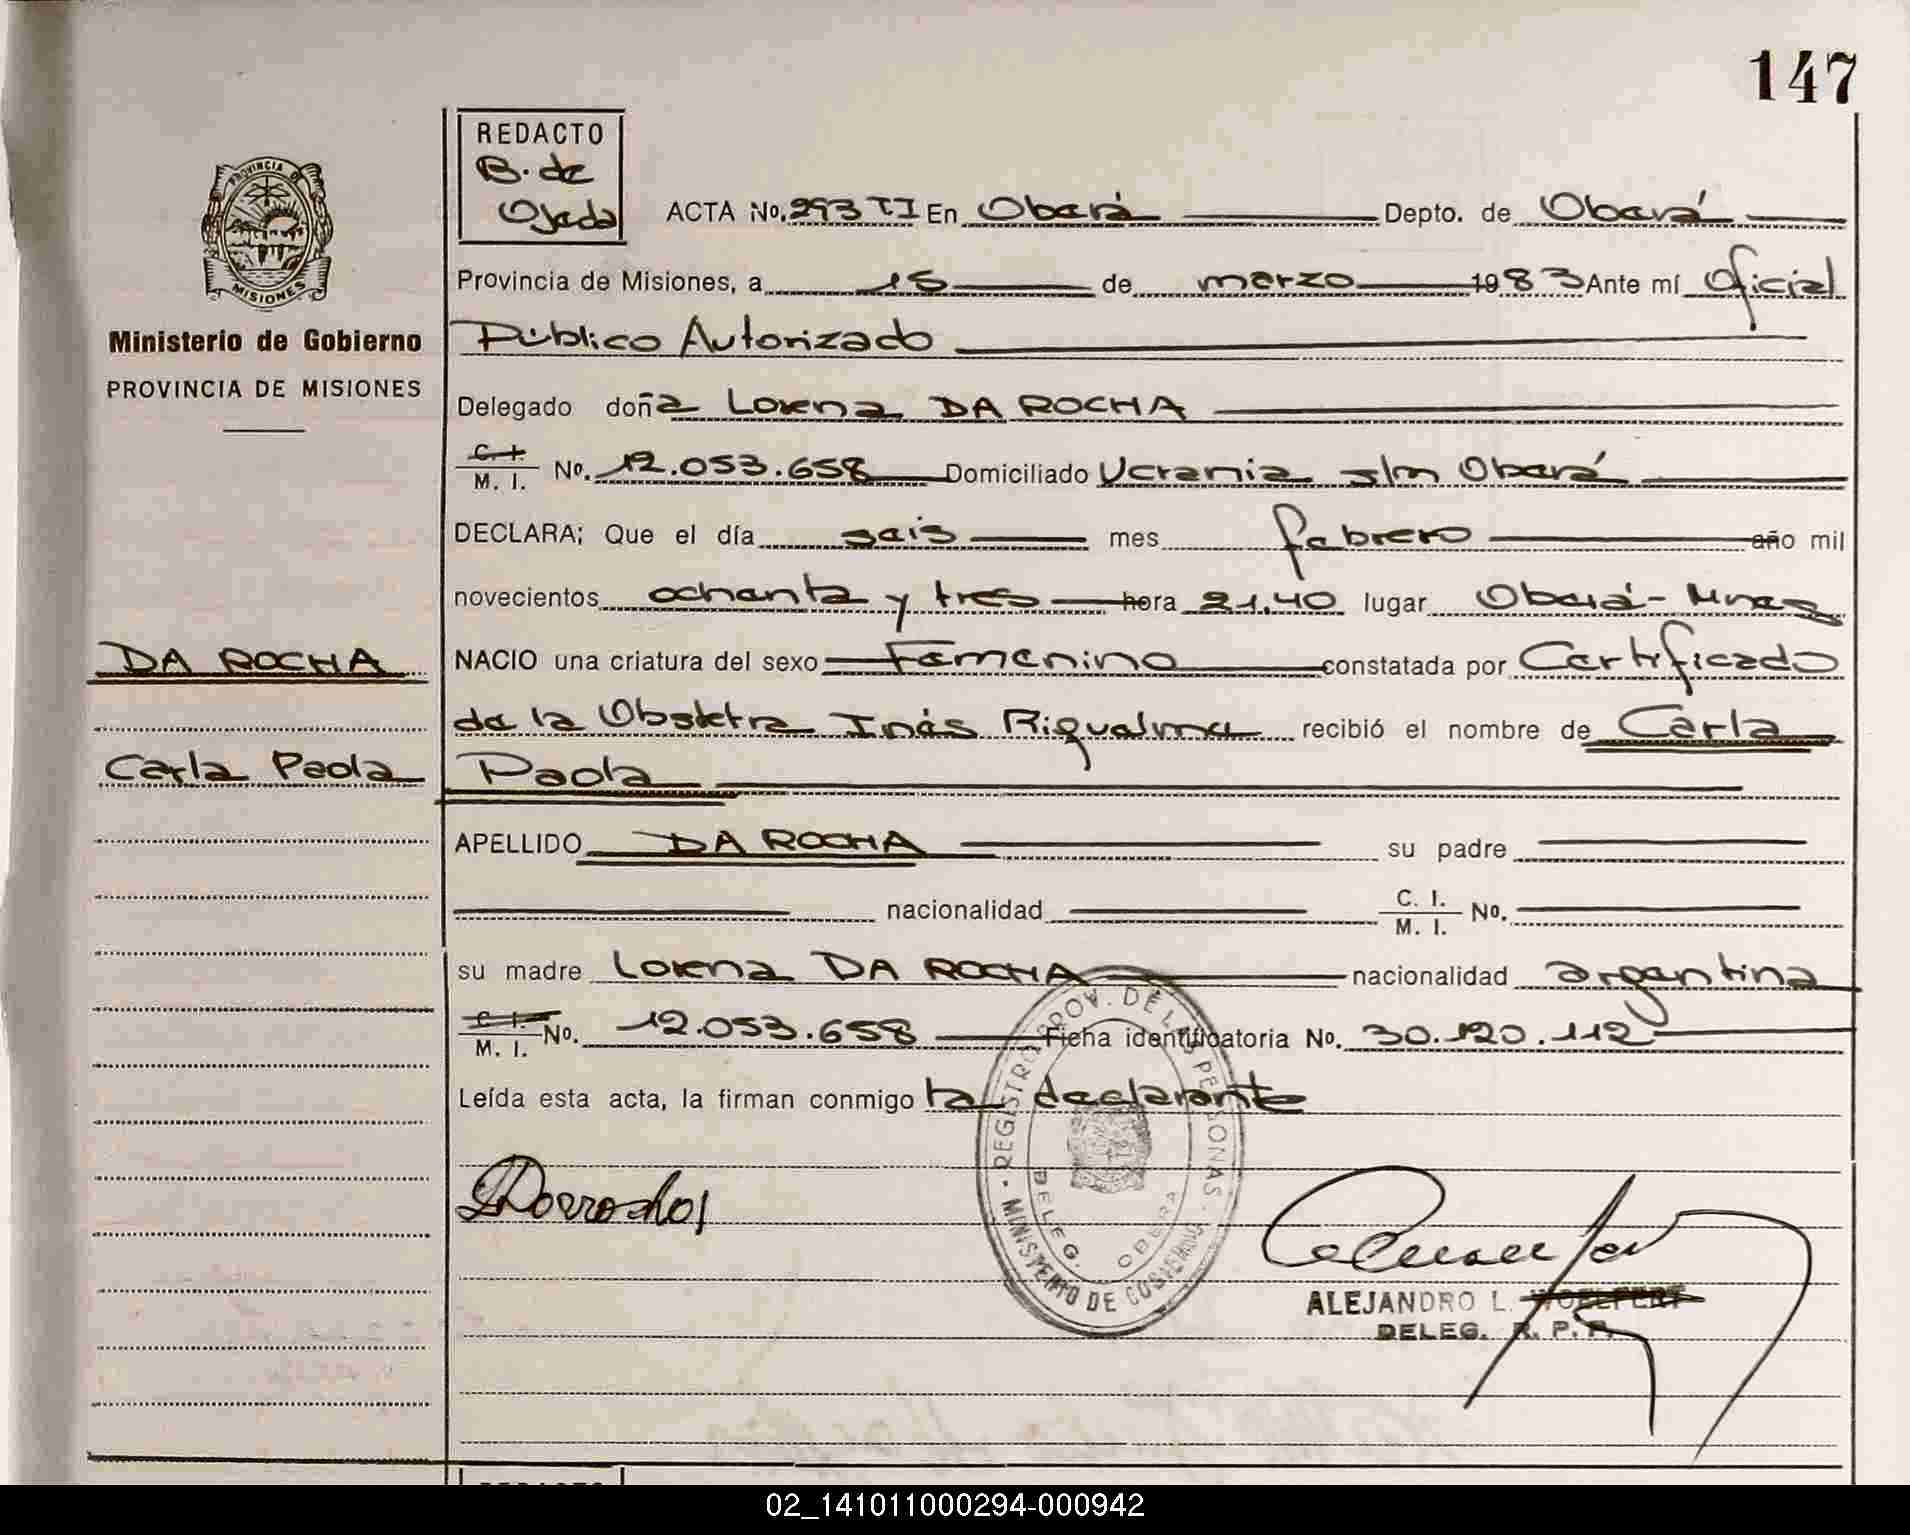 147
REDACTO
B. de
Ojeda
ACTA No. 293 TI En Oberá Depto. de Oberá
Provincia de Misiones, a 15 de marzo 1983 Ante mí Oficial
Público Autorizado
Delegado doña Lorena DA ROCHA
C. I. / M. I. No. 12.053.658 Domiciliado Ucrania s/n Oberá
DECLARA; Que el día seis mes febrero año mil
novecientos ochenta y tres hora 21.40 lugar Oberá - Mnes
NACIO una criatura del sexo Femenino constatada por Certificado
de la Obstetra Inés Riquelme recibió el nombre de Carla
Paola
APELLIDO DA ROCHA su padre
nacionalidad C. I. / M. I. No.
su madre Lorena DA ROCHA nacionalidad argentina
C. I. / M. I. No. 12.053.658 Ficha identificatoria No. 30.120.112
Leída esta acta, la firman conmigo la declarante
PROVINCIA DE
MISIONES
Ministerio de Gobierno
PROVINCIA DE MISIONES
DA ROCHA
Carla Paola
REGISTRO PROV. DE LAS PERSONAS
DELEG. OBERA
MINISTERIO DE GOBIERNO
ALEJANDRO L. WOELFERT
DELEG. R. P. P.
REDACTO
02_141011000294-000942